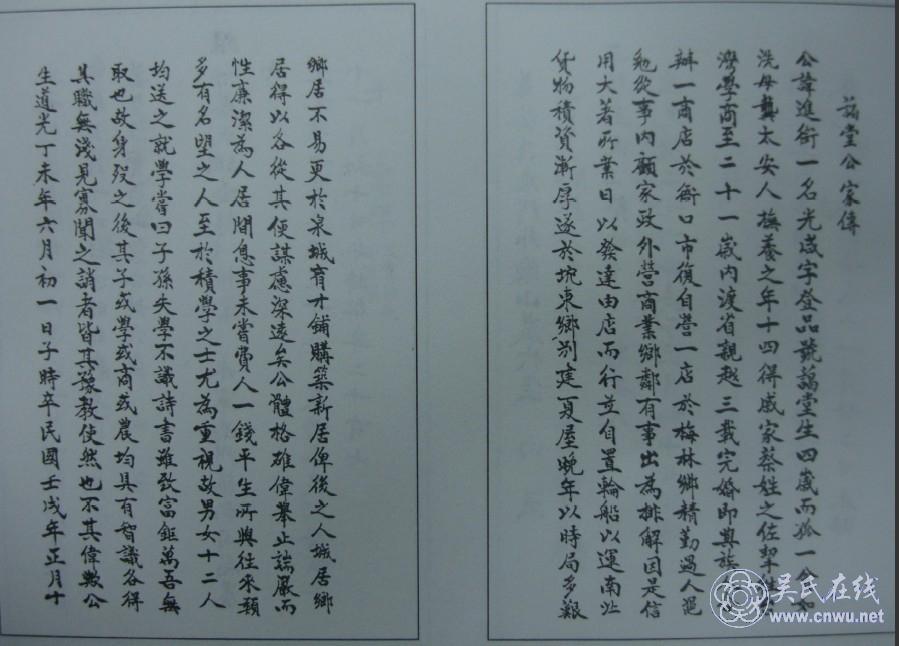 藹堂公家傳
公諱進銜一名光咸字登品號藹堂生四歲而孤一公如
洗母龔太安人撫養之年十四得戚家蔡姓之佐挈
灣學商至二十一歲內渡省親越三載完婚即與族
辦一商店於衙口市復自營一店於梅林鄉精勤過人黽
勉從事內顧家政外營商業鄉鄰有事出為排解因是信
用大著所業日以發達由店而行並自置輪船以運南北
貨物積資漸厚遂於坑東鄉別建夏屋晚年以時局多艱
鄉居不易更於泉城育才鋪購築新居俾後之人城居鄉
居得以各從其便謀慮深遠矣公體格雄偉舉止端嚴而
性廉潔為人居間息事未嘗費人一錢平生所與往來類
多有名望之人至於積學之士尤為重視故男女十二人
均送之就學嘗曰子孫失學不識詩書雖致富鉅萬吾無
取也故身歿之後其子或學或商或農均具有智識各得
其職無淺見寡聞之誚者皆其豫教使然也不其偉歟公
生道光丁未年六月初一日子時卒民國壬戌年正月十
吳氏在线
www.cnwu.net